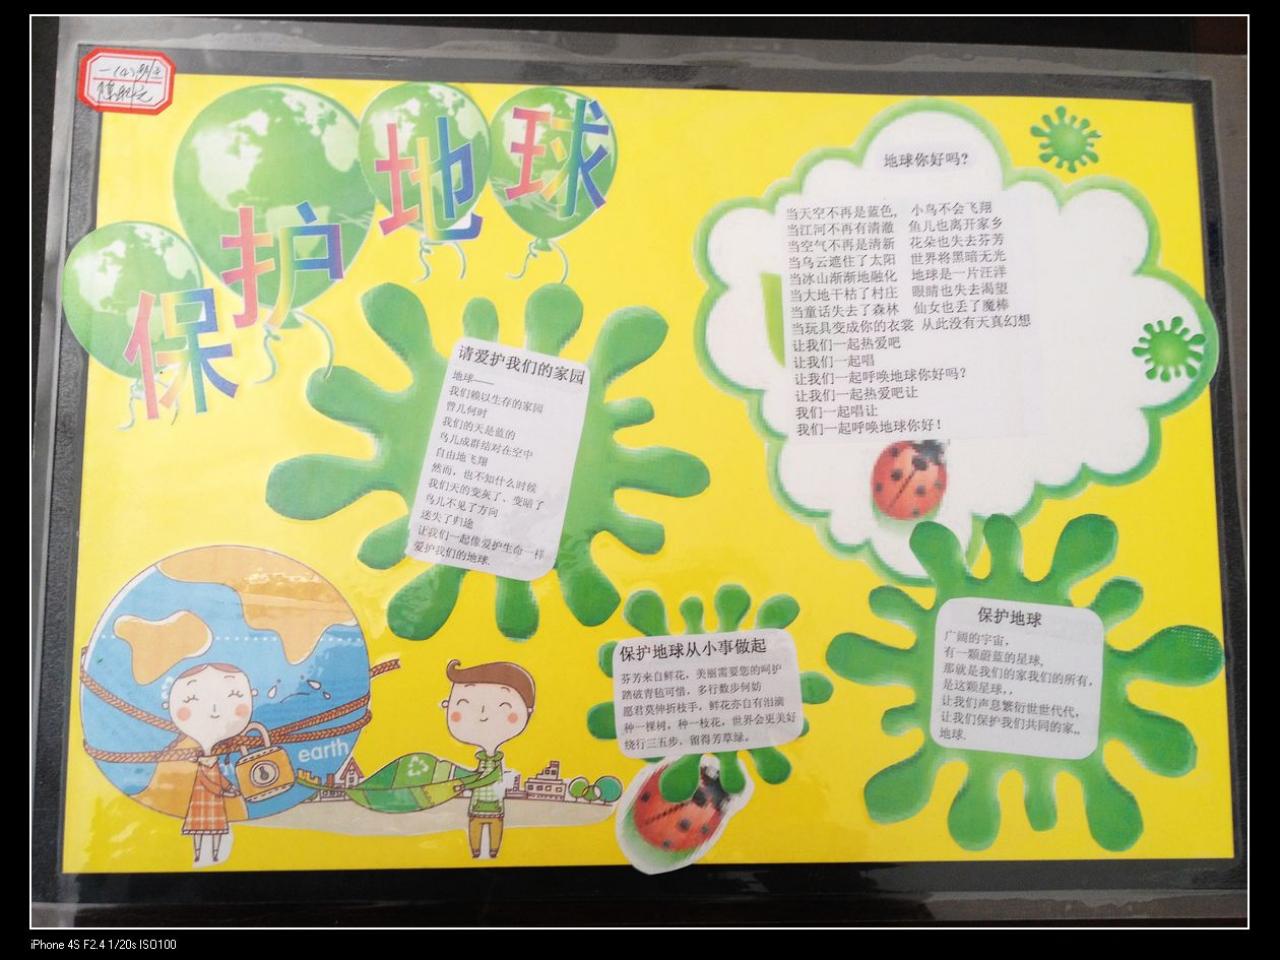 保护地球
地球你好吗?
当天空不再是蓝色, 小鸟不会飞翔
当江河不再有清澈 鱼儿也离开家乡
当空气不再是清新 花朵也失去芬芳
当乌云遮住了太阳 世界将黑暗无光
当冰山渐渐地融化 地球是一片汪洋
当大地干枯了村庄 眼睛也失去渴望
当童话失去了森林 仙女也丢了魔棒
当玩具变成你的衣裳 从此没有天真幻想
让我们一起热爱吧
让我们一起唱
让我们一起呼唤地球你好吗?
让我们一起热爱吧让
我们一起唱让
我们一起呼唤地球你好!
请爱护我们的家园
地球——
我们赖以生存的家园
曾几何时
我们的天是蓝的
鸟儿成群结对在空中
自由地飞翔
然而，也不知什么时候
我们天的变灰了、变暗了
鸟儿不见了方向
迷失了归途
让我们一起像爱护生命一样
爱护我们的地球.
保护地球从小事做起
芬芳来自鲜花，美丽需要您的呵护
踏破青毡可惜，多行数步何妨
愿君莫伸折枝手，鲜花亦自有泪滴
种一棵树，种一枝花，世界会更美好
绕行三五步，留得芳草绿。
保护地球
广阔的宇宙，
有一颗蔚蓝的星球,
那就是我们的家我们的所有，
是这颗星球,，
让我们声息繁衍世世代代，
让我们保护我们共同的家,。
地球.
earth
iPhone 4S F2.4 1/20s ISO100